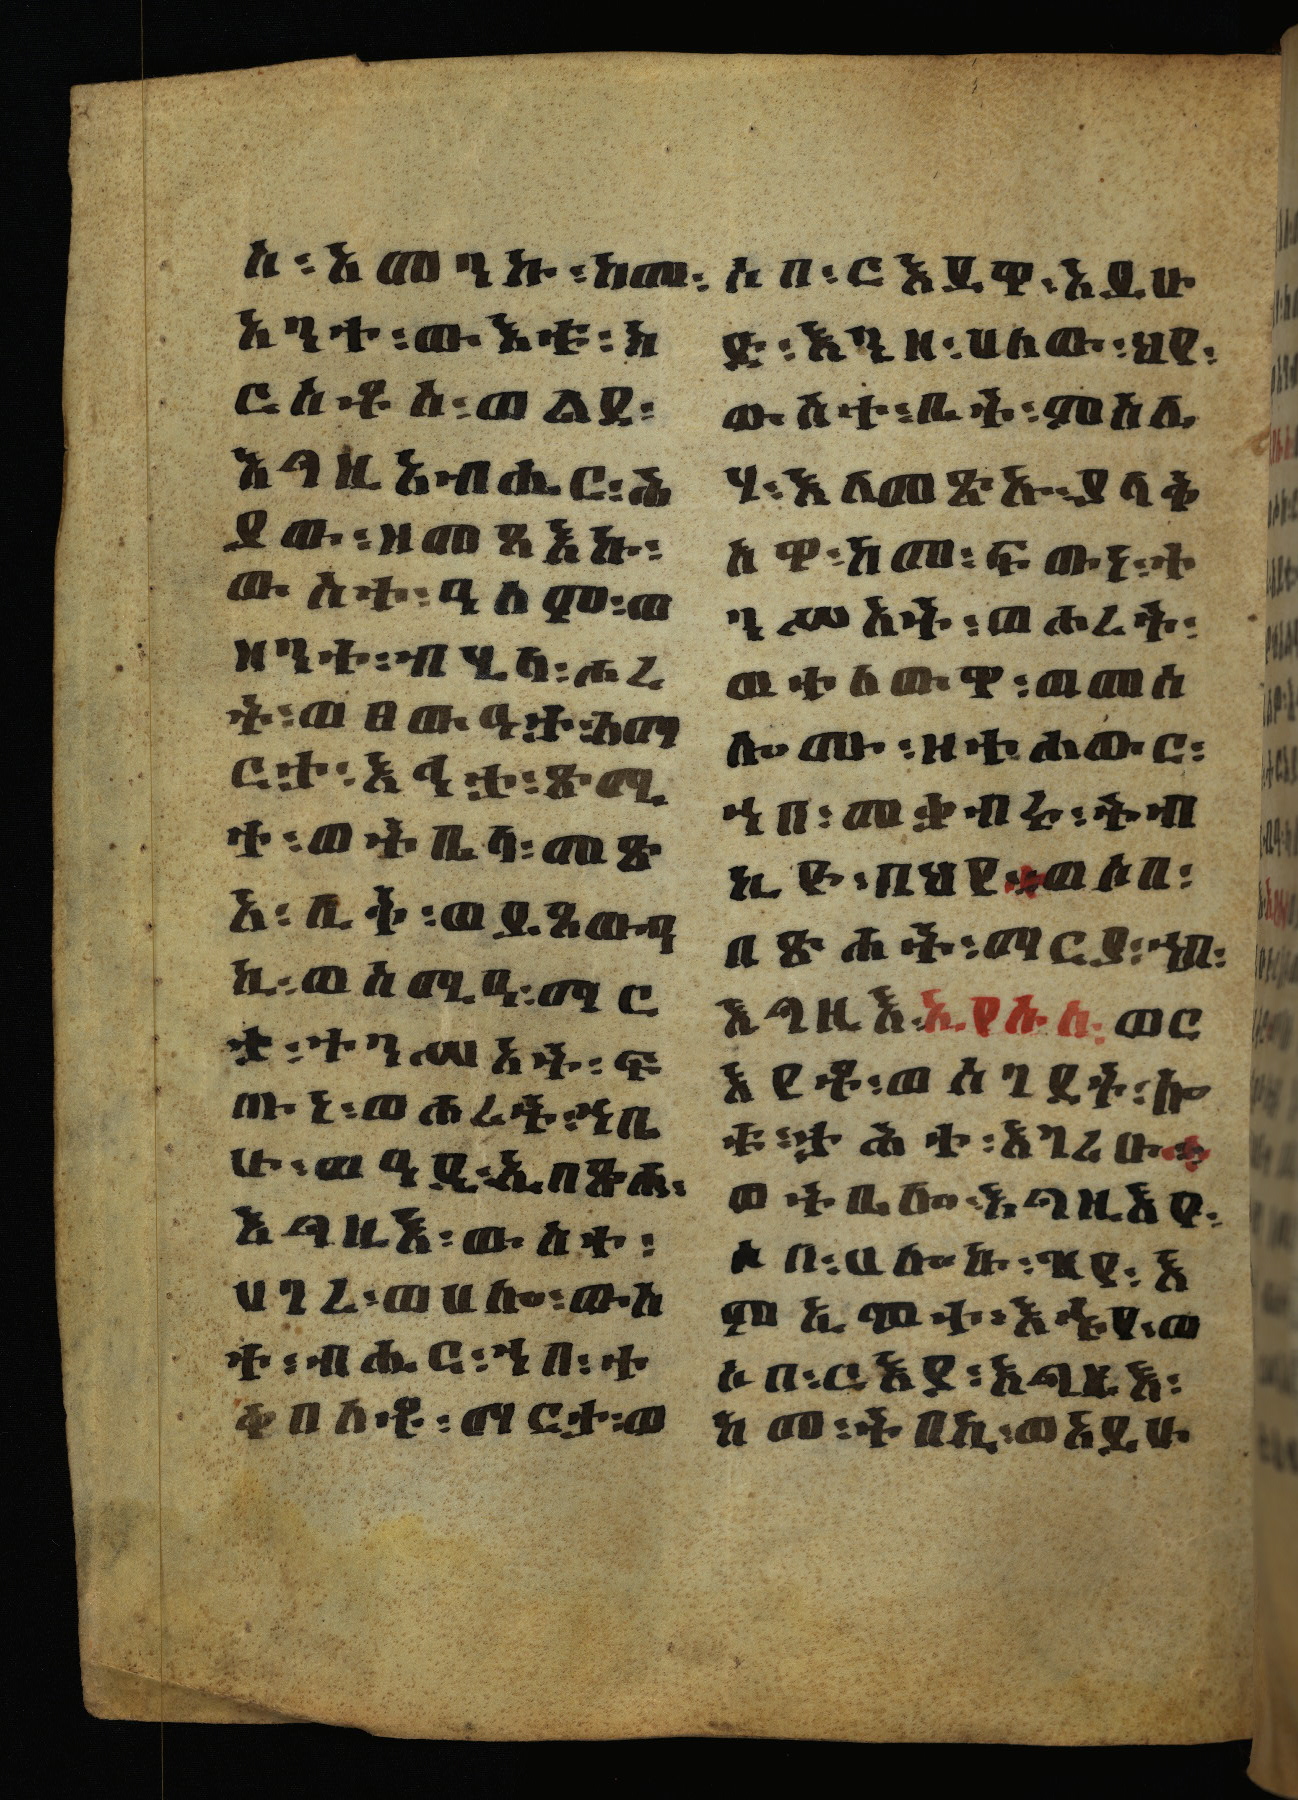 ስ፡አመንኩ፡ከመ፡
አንተ፡ውእቱ፡ክ
ርስቶስ፡ወልደ፡
እግዚአብሔር፡ል
ያው፡ዘመጻእከ፡
ውስተ፡ዓለም፡ወ
ዘንተ፡ብሂላ፡ሖረ
ት፡ወፀውዓታ፡ለማ
ርታ፡እኅታ፡ጽሚ
ተ፡ወትቤላ፡መጽ
አ፡ሊቅ፡ወይጼውዓ
ኪ፡ወሰሚዓ፡ማር
ታ፡ተንሥአት፡ፍ
ጡነ፡ወሖረት፡ኀቤ
ሁ፡ወዓዲ፡ኢበጽሐ፡
እግዚእ፡ውስተ፡
ሀገረ፡ወሀሎ፡ውእ
ቱ፡ብሔር፡ኀበ፡ተ
ቀበለቶ፡ማርታ፡ወ
ሶበ፡ርእይዋ፡አይሁ
ድ፡እንዘ፡ሀለው፡ህየ፡
ውስተ፡ቤት፡ምስሌ
ሃ፡እለመጽኡ፡ያላቅ
ስዋ፡ከመ፡ፍጡነ፡ተ
ንሥአት፡ወሖረት፡
ወተለውዋ፡ወመሰ
ሎሙ፡ዘተሐውር፡
ኀበ፡መቃብሩ፡ትብ
ኪዮ፡በህየ፡ወሶበ፡
በጽሐት፡ማርያ፡ኀበ፡
እግዚእ፡ኢየሱስ፡ወር
እየቶ፡ወሰገደት፡ሎ
ቱ፡ታሕተ፡እገሪሁ፡
ወትቤሎ፡እግዚእየ፡
ሶበ፡ሀሎከ፡ዝየ፡እ
ምኢሞተ፡እኁየ፡ወ
ሶበ፡ርእያ፡እግዚእ፡
ከመ፡ትበኪ፡ወአይሁ